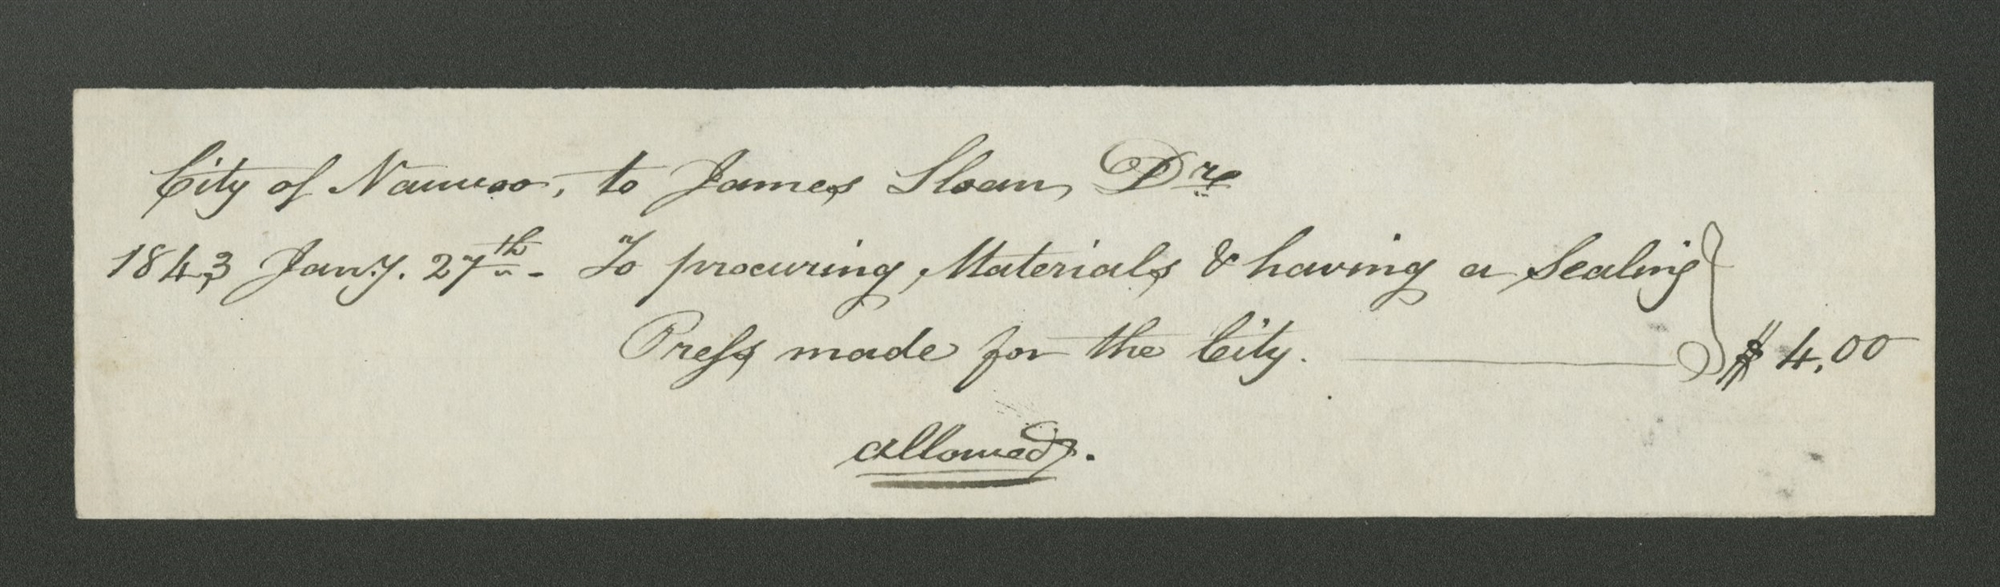 City of Nauvoo, to James Sloan, Dre
1843 Jany. 27th. To procuring, Materials & having a Sealing
Press made for the City. $4.00
allowed.